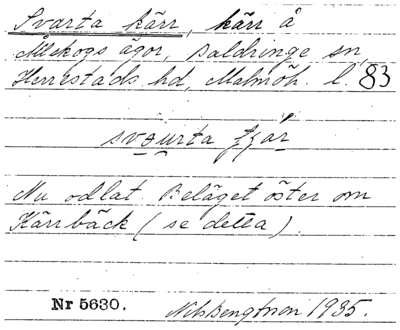 Svarta kärr, kärr å
Ållskogs ägor, Baldringe sn,
Herrestads hd, Malmöh. l. 83
svaurta tjär
Nu odlat. Beläget öster om
Kärrbäck (se detta).
Nr 5630. Nils Bengtsson 1935.